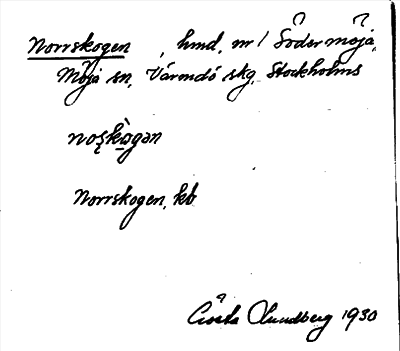 Norrskogen, hmd, nr 1 Södermöja,
Möja sn, Värmdö skg, Stockholms
noʂkògən
Norrskogen, kb
Gösta Lundberg 1930